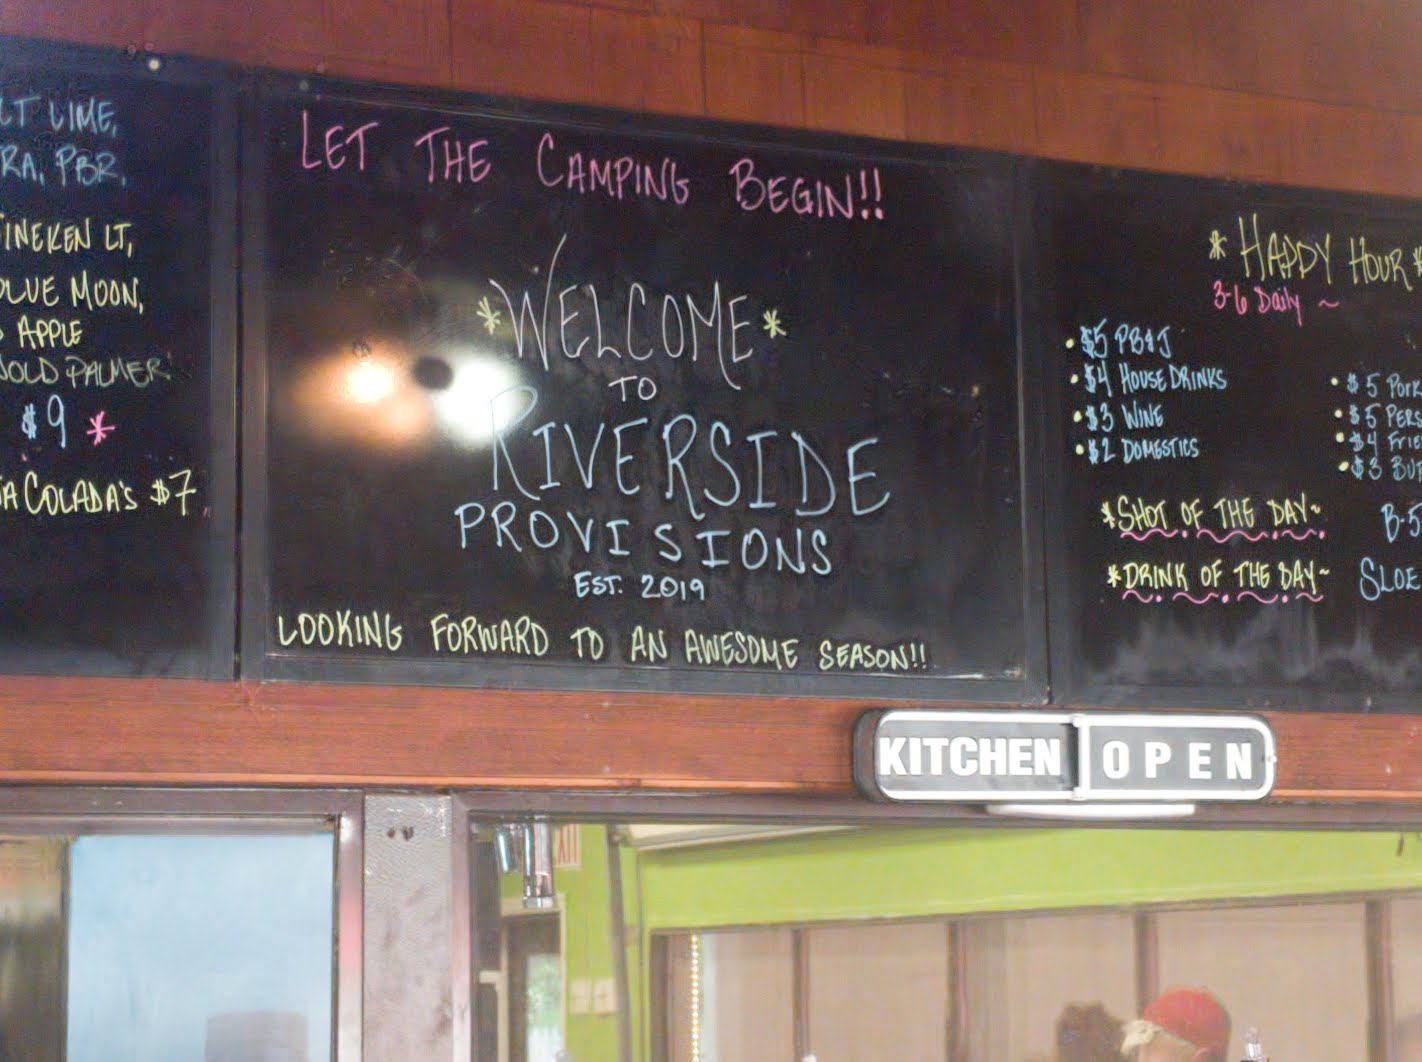 LT LIME,
RA, PBR,
INEKEN LT,
BLUE MOON,
APPLE
NOLD PALMER
$9 *
A COLADA'S $7
LET THE CAMPING BEGIN!!
*WELCOME*
TO
RIVERSIDE
PROVISIONS
EST. 2019
LOOKING FORWARD TO AN AWESOME SEASON!!
* HAPPY HOUR *
3-6 Daily ~
• $5 PB&J
• $4 HOUSE DRINKS
• $3 WINE
• $2 DOMESTICS
• $5 PORK
• $5 PERS
• $4 FRIE
• $3
*SHOT OF THE DAY~ B-5
*DRINK OF THE DAY~ SLOE
KITCHEN OPEN
EXIT